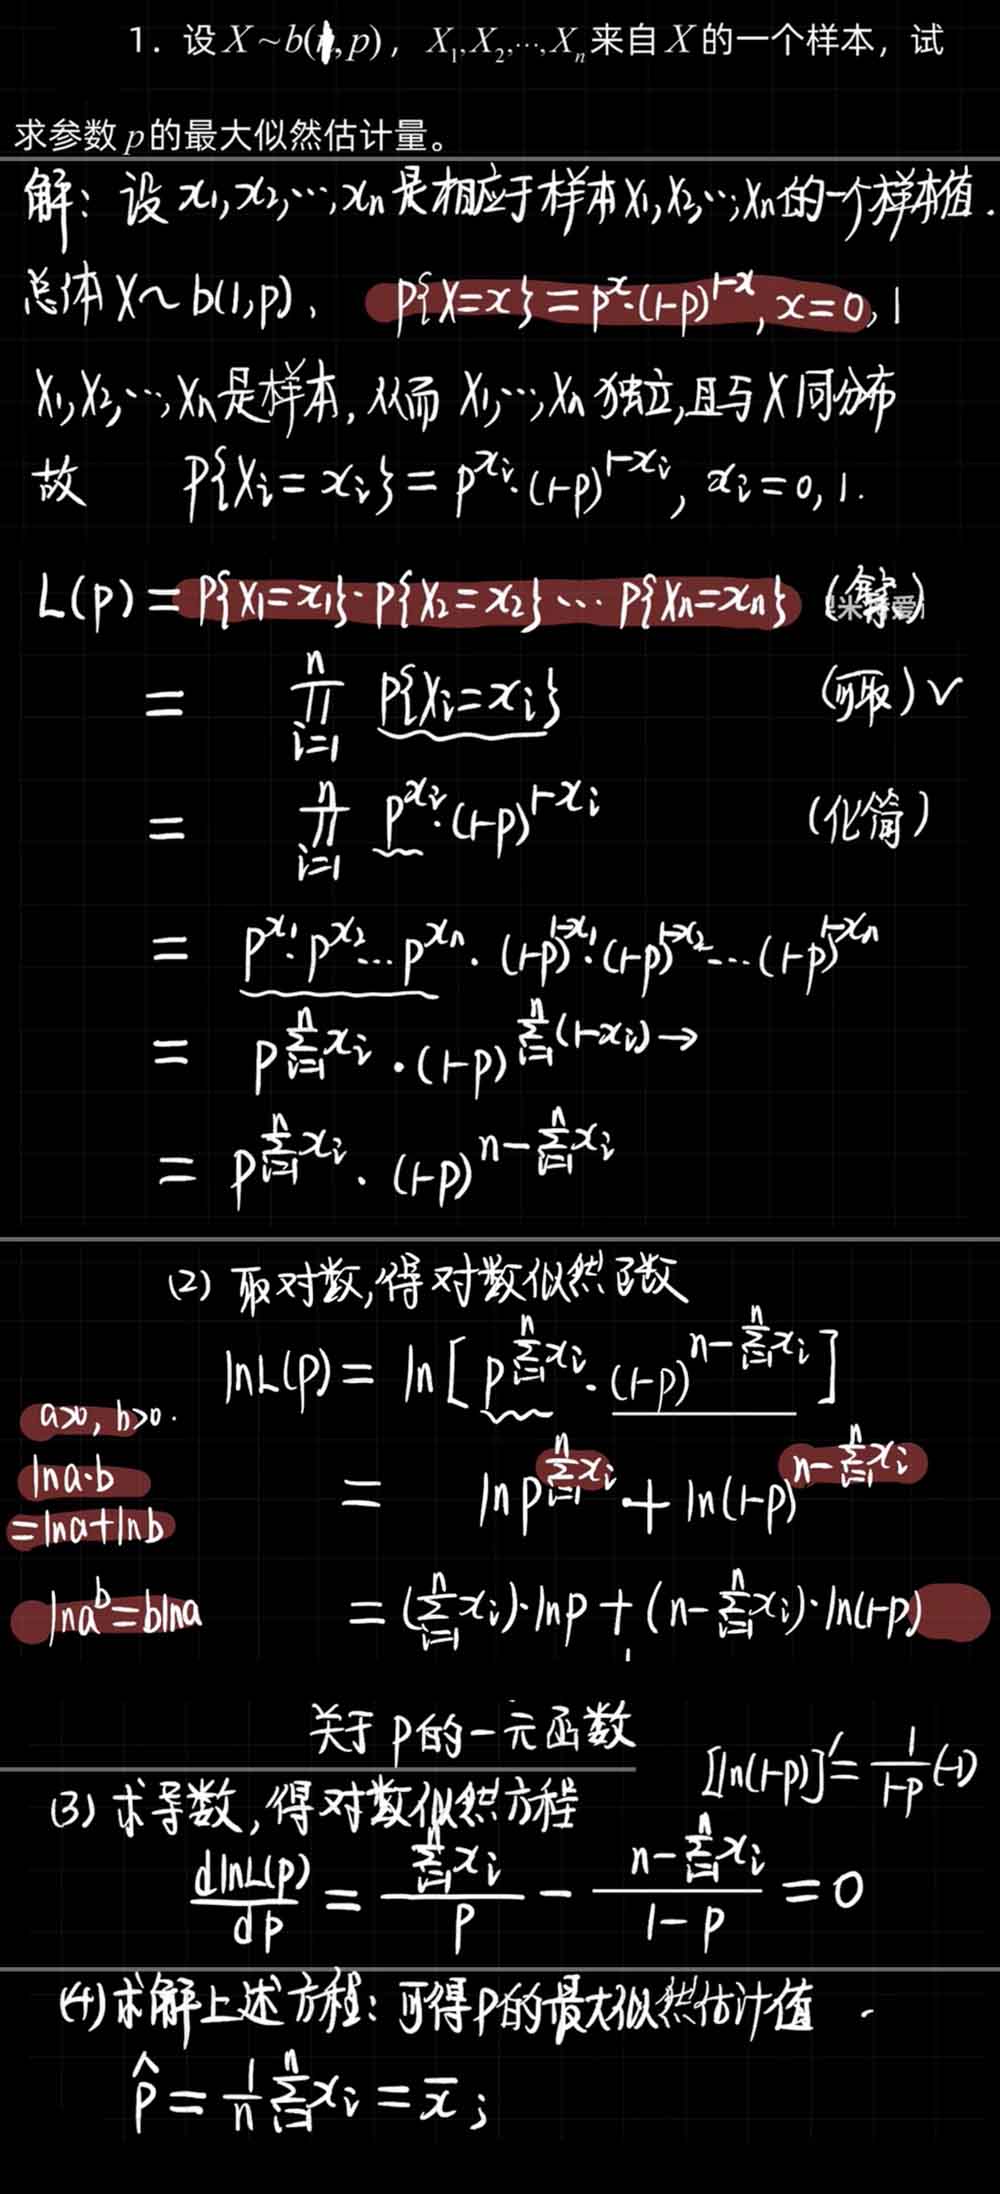 1. 设X~b(1,p)，X₁,X₂,…,Xₙ来自X的一个样本，试
求参数p的最大似然估计量。
解：设x₁,x₂,…,xₙ是相应于样本X₁,X₂,…,Xₙ的一个样本值.
总体X~b(1,p), P{X=x}=pˣ·(1-p)¹⁻ˣ, x=0,1
X₁,X₂,…,Xₙ是样本,从而X₁,…,Xₙ独立,且与X同分布
故 P{Xᵢ=xᵢ}=p^{xᵢ}·(1-p)^{1-xᵢ}, xᵢ=0,1.
L(p)=P{X₁=x₁}·P{X₂=x₂}…P{Xₙ=xₙ}
=∏_{i=1}^{n} P{Xᵢ=xᵢ} (可取)√
=∏_{i=1}^{n} p^{xᵢ}·(1-p)^{1-xᵢ} (化简)
=p^{x₁}·p^{x₂}…p^{xₙ}·(1-p)^{1-x₁}·(1-p)^{1-x₂}…(1-p)^{1-xₙ}
=p^{∑_{i=1}^{n}xᵢ}·(1-p)^{∑_{i=1}^{n}(1-xᵢ)}→
=p^{∑_{i=1}^{n}xᵢ}·(1-p)^{n-∑_{i=1}^{n}xᵢ}
(2) 取对数,得对数似然函数
lnL(p)=ln[p^{∑_{i=1}^{n}xᵢ}·(1-p)^{n-∑_{i=1}^{n}xᵢ}]
a>0, b>0.
lna·b
=lna+lnb
=lnp^{∑_{i=1}^{n}xᵢ}+ln(1-p)^{n-∑_{i=1}^{n}xᵢ}
lnaᵇ=blna
=(∑_{i=1}^{n}xᵢ)·lnp+(n-∑_{i=1}^{n}xᵢ)·ln(1-p)
关于p的一元函数
[ln(1-p)]'=\frac{1}{1-p}(-1)
(3) 求导数,得对数似然方程
\frac{dlnL(p)}{dp}=\frac{∑_{i=1}^{n}xᵢ}{p}-\frac{n-∑_{i=1}^{n}xᵢ}{1-p}=0
(4) 求解上述方程:可得p的最大似然估计值
p̂=\frac{1}{n}∑_{i=1}^{n}xᵢ=x̄;